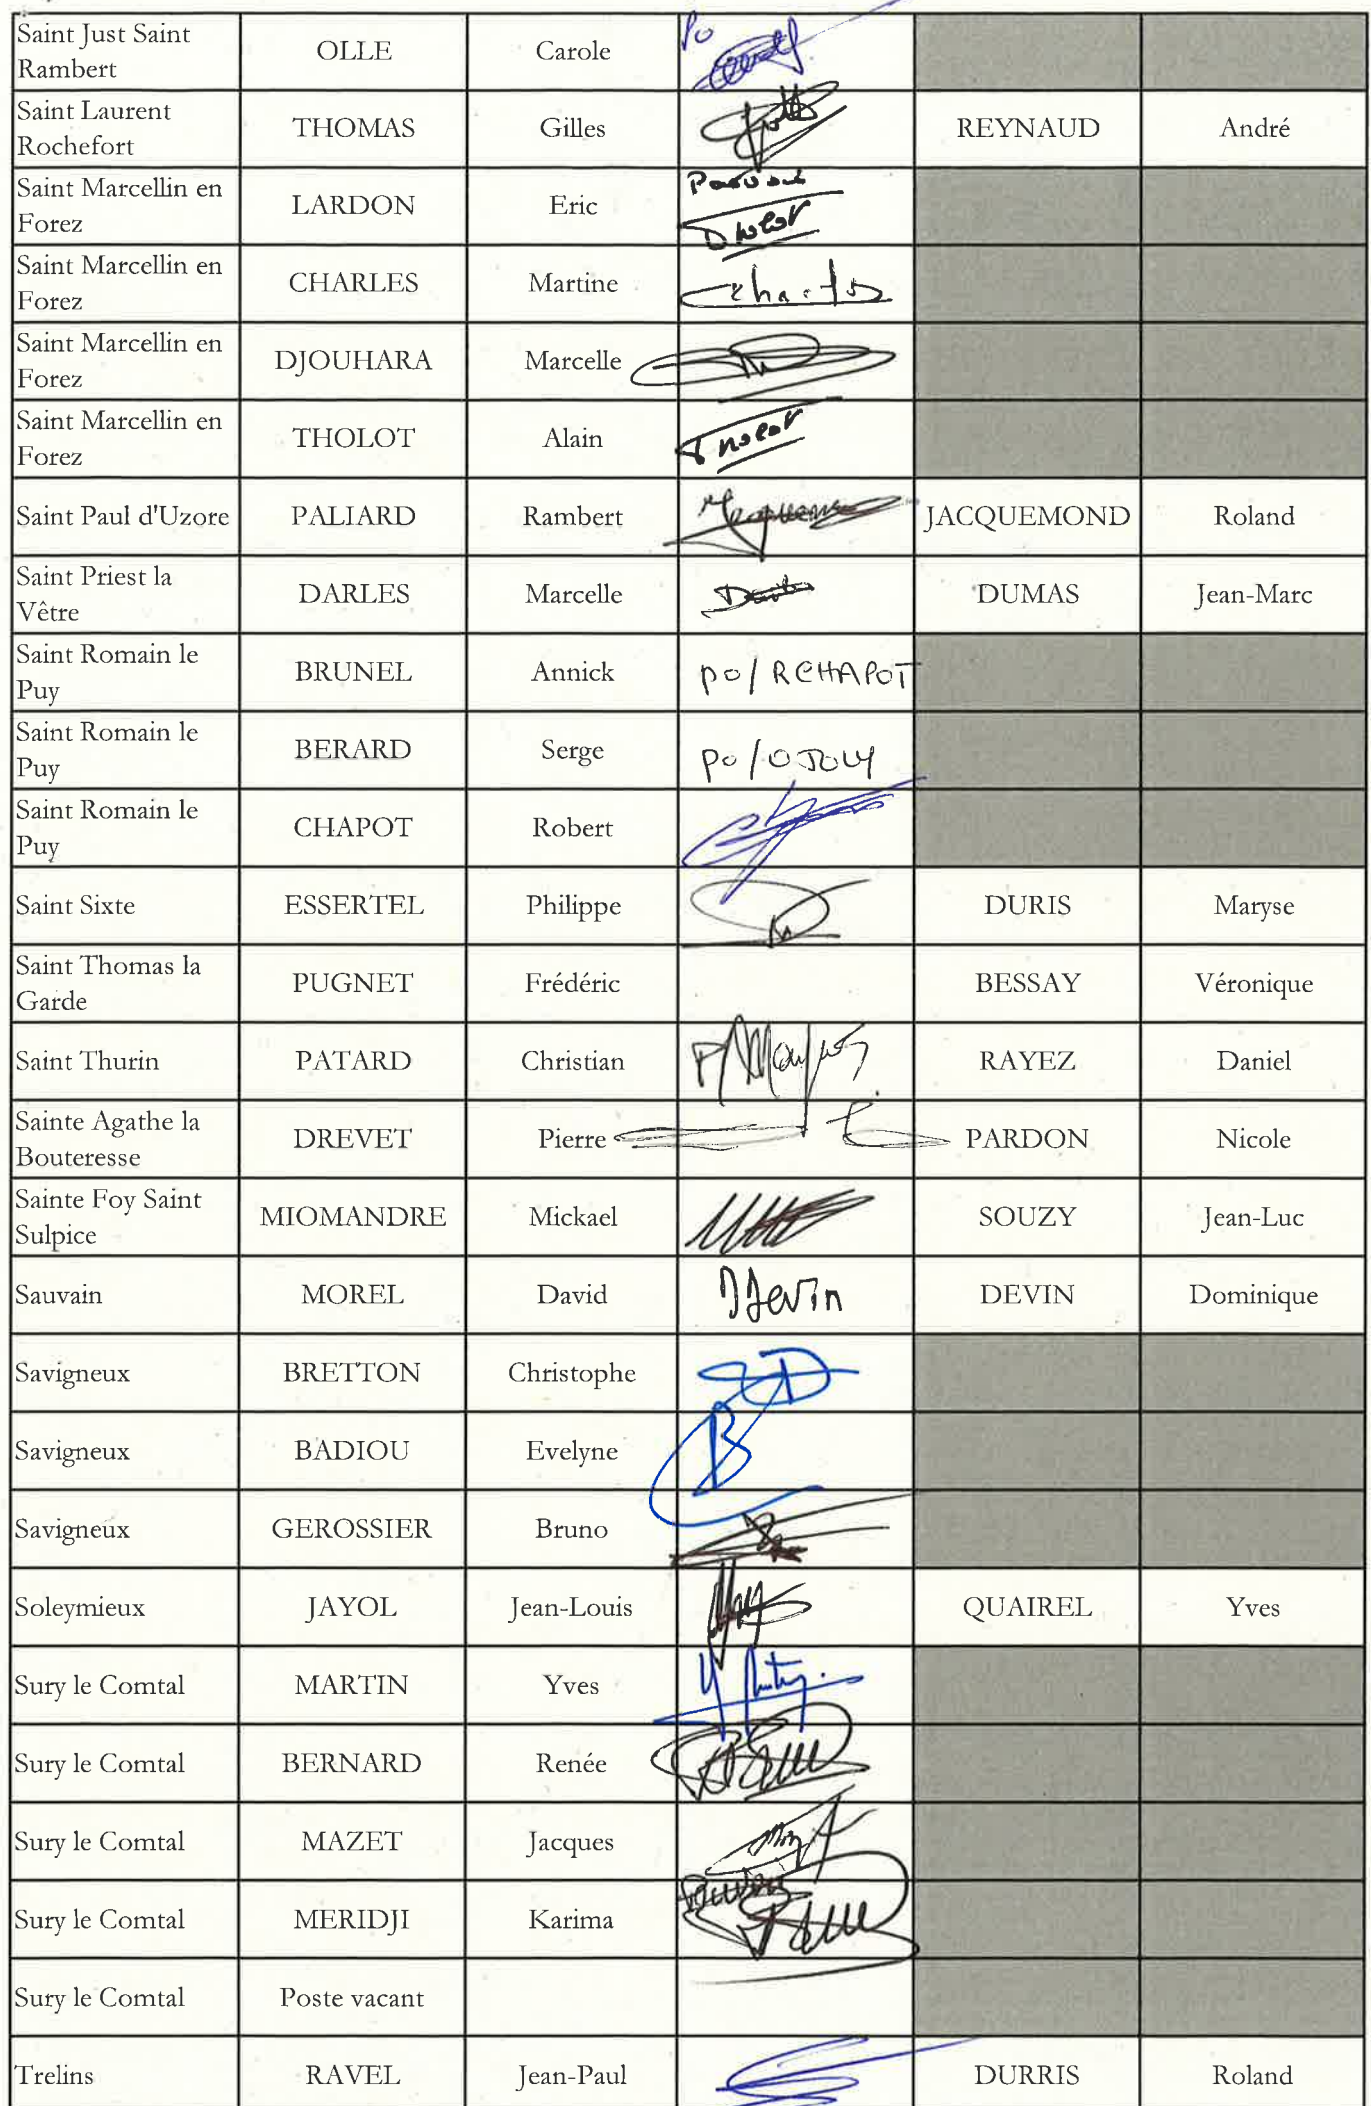 Saint Just Saint
Rambert
OLLE
Carole
Po
Saint Laurent
Rochefort
THOMAS
Gilles
REYNAUD
André
Saint Marcellin en
Forez
LARDON
Eric
Saint Marcellin en
Forez
CHARLES
Martine
Saint Marcellin en
Forez
DJOUHARA
Marcelle
Saint Marcellin en
Forez
THOLOT
Alain
Tholot
Saint Paul d'Uzore
PALIARD
Rambert
JACQUEMOND
Roland
Saint Priest la
Vêtre
DARLES
Marcelle
DUMAS
Jean-Marc
Saint Romain le
Puy
BRUNEL
Annick
po/ RCHAPOT
Saint Romain le
Puy
BERARD
Serge
po/ O JOLY
Saint Romain le
Puy
CHAPOT
Robert
Saint Sixte
ESSERTEL
Philippe
DURIS
Maryse
Saint Thomas la
Garde
PUGNET
Frédéric
BESSAY
Véronique
Saint Thurin
PATARD
Christian
RAYEZ
Daniel
Sainte Agathe la
Bouteresse
DREVET
Pierre
PARDON
Nicole
Sainte Foy Saint
Sulpice
MIOMANDRE
Mickael
SOUZY
Jean-Luc
Sauvain
MOREL
David
DDevin
DEVIN
Dominique
Savigneux
BRETTON
Christophe
Savigneux
BADIOU
Evelyne
Savigneux
GEROSSIER
Bruno
Soleymieux
JAYOL
Jean-Louis
QUAIREL
Yves
Sury le Comtal
MARTIN
Yves
Sury le Comtal
BERNARD
Renée
Sury le Comtal
MAZET
Jacques
Sury le Comtal
MERIDJI
Karima
Sury le Comtal
Poste vacant
Trelins
RAVEL
Jean-Paul
DURRIS
Roland